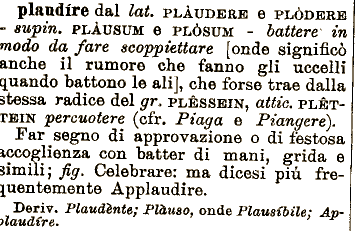 plaudíre dal lat. PLÀUDERE e PLÒDERE
- supin. PLÀUSUM e PLÒSUM - battere in
modo da fare scoppiettare [onde significò
anche il rumore che fanno gli uccelli
quando battono le ali], che forse trae dalla
stessa radice del gr. PLÊSSEIN, attic. PLÊT-
TEIN percuotere (cfr. Piaga e Piangere).
Far segno di approvazione o di festosa
accoglienza con batter di mani, grida e
simili; fig. Celebrare: ma dicesi più fre-
quentemente Applaudire.
Deriv. Plaudènte; Plàuso, onde Plausíbile; Ap-
plaudíre.